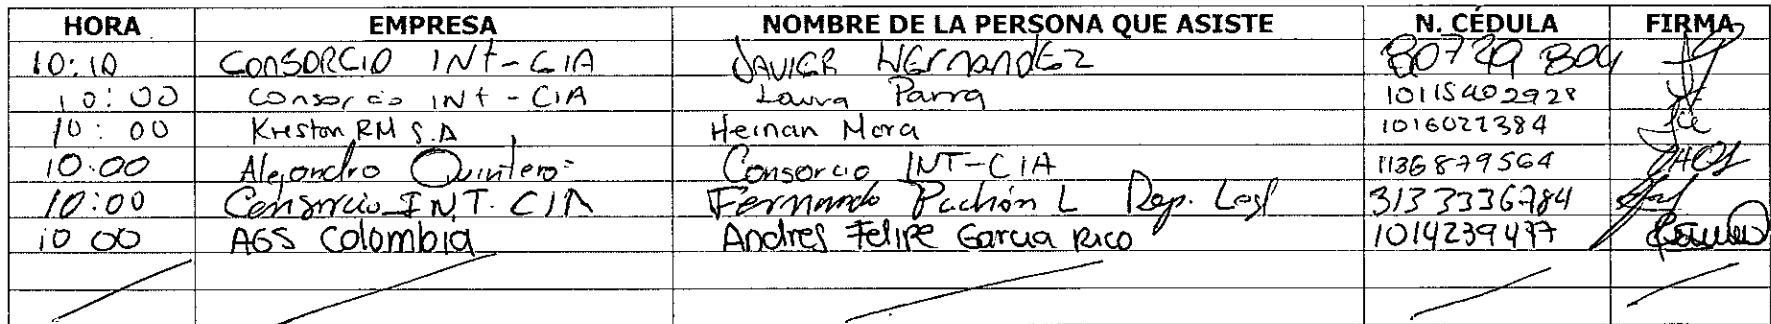 HORA EMPRESA NOMBRE DE LA PERSONA QUE ASISTE N. CÉDULA FIRMA
10:10 CONSORCIO INT-CIA JAVIER HERNANDEZ 80729804
10:00 Consorcio INT-CIA Laura Parra
10:00 Kreston RM S.A Hernan Mora 1016022384
10:00 Alejandro Quintero Consorcio INT-CIA 1136879564
10:00 Consorcio INT. CIA Fernando Pachón L Rep. Legl 3133336784
10 00 AGS Colombia Andres Felipe Garcia Rico 1014239477